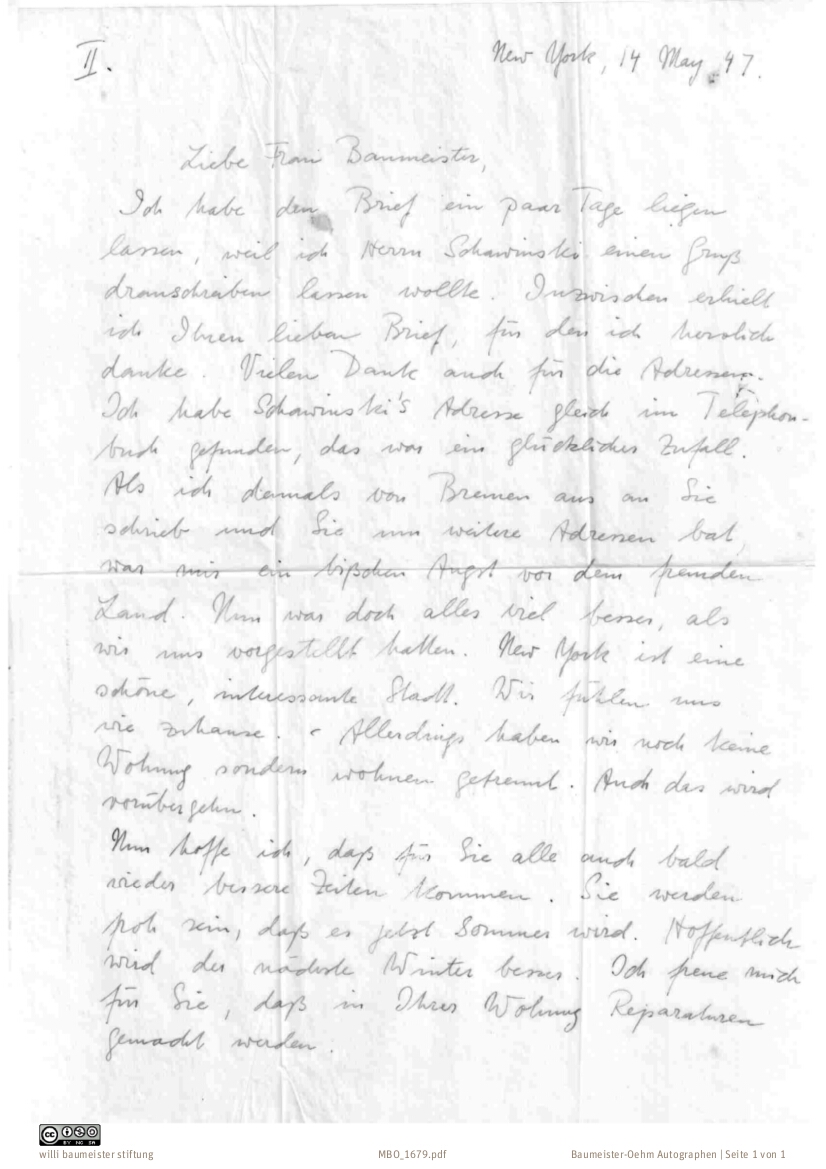 II.
New York, 14 May 47.
Liebe Frau Baumeister,
Ich habe den Brief ein paar Tage liegen
lassen, weil ich Herrn Schawinski einen Gruß
dranschreiben lassen wollte. Inzwischen erhielt
ich Ihren lieben Brief, für den ich herzlich
danke. Vielen Dank auch für die Adressen.
Ich habe Schawinski's Adresse gleich im Telephon-
buch gefunden, das war ein glücklicher Zufall.
Als ich damals von Bremen aus an Sie
schrieb und Sie um weitere Adressen bat,
war mir ein bißchen Angst vor dem fremden
Land. Nun war doch alles viel besser, als
wir uns vorgestellt hatten. New York ist eine
schöne, interessante Stadt. Wir fühlen uns
wie zuhause. - Allerdings haben wir noch keine
Wohnung sondern wohnen getrennt. Auch das wird
vorübergehn.
Nun hoffe ich, daß für Sie alle auch bald
wieder bessere Zeiten kommen. Sie werden
froh sein, daß es jetzt Sommer wird. Hoffentlich
wird der nächste Winter besser. Ich freue mich
für Sie, daß in Ihrer Wohnung Reparaturen
gemacht werden.
cc BY NC SA
willi baumeister stiftung MBO_1679.pdf Baumeister-Oehm Autographen | Seite 1 von 1